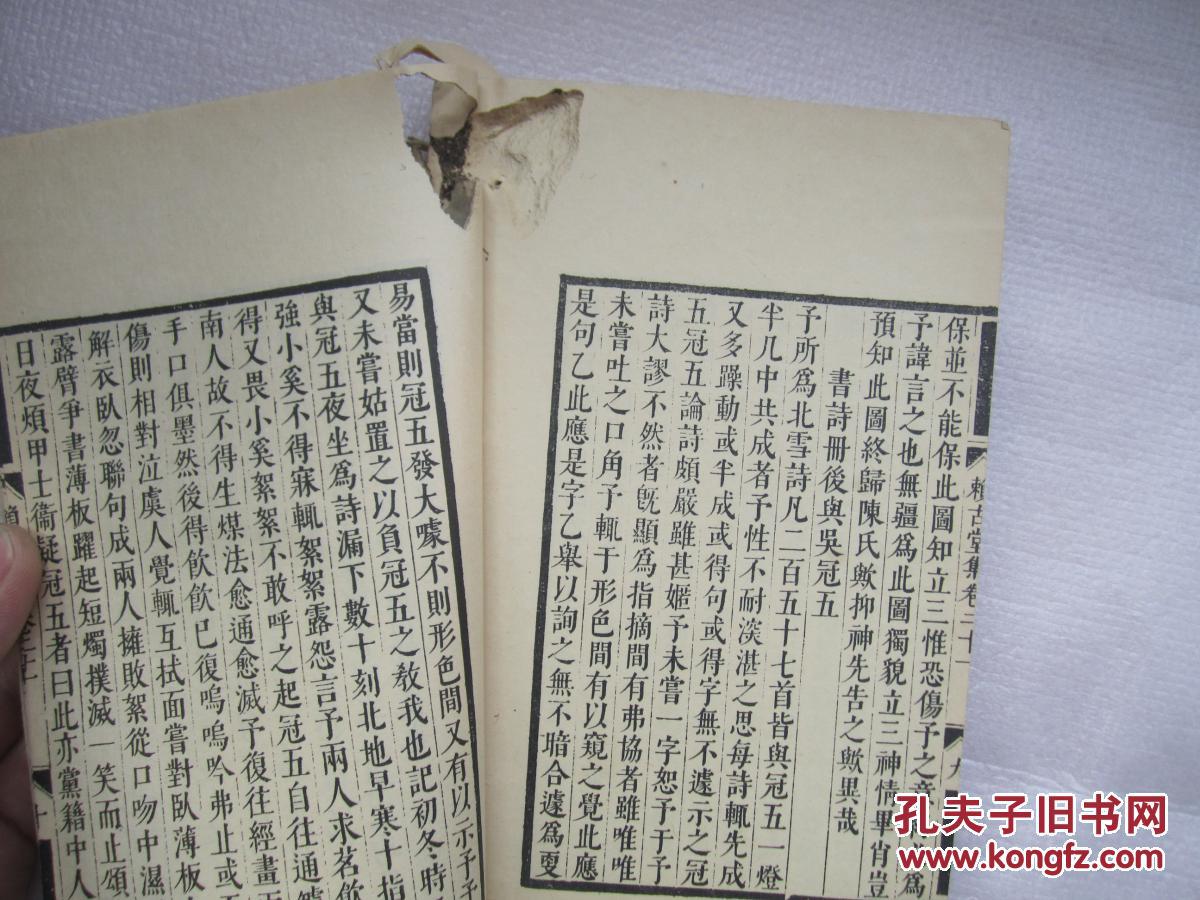 保並不能保此圖知立三惟恐傷予之意
予諱言之也無疆爲此圖獨貌立三神情畢肖豈
預知此圖終歸陳氏歟抑神先告之歟異哉
書詩冊後與吳冠五
予所爲北雪詩凡二百五十七首皆與冠五一燈
半几中共成者予性不耐淡湛之思每詩輒先成
又多躁動或半成或得句或得字無不遽示之冠
五冠五論詩頗嚴雖甚㛂予未嘗一字恕予于予
詩大謬不然者旣顯爲指摘間有弗協者雖唯唯
未嘗吐之口角予輒于形色間有以窺之覺此應
是句乙此應是字乙舉以詢之無不暗合遽爲㪅
賴古堂集卷二十一
九
易當則冠五發大噱不則形色間又有以示予
又未嘗姑置之以負冠五之敎我也記初冬時
與冠五夜坐爲詩漏下數十刻北地早寒十指
強小奚不得寐輒絮絮露怨言予兩人求茗飲
得又畏小奚絮絮不敢呼之起冠五自往通爐
南人故不得生煤法愈通愈滅予復往經畫
手口俱墨然後得飲飲巳復嗚嗚吟弗止或
傷則相對泣虞人覺輒互拭面嘗對臥薄板
解衣臥忽聯句成兩人擁敗絮從口吻中濕
露臂爭書薄板躍起短燭撲滅一笑而止頌
日夜煩甲士衞疑冠五者曰此亦黨籍中人
十
孔夫子旧书网
www.kongfz.com